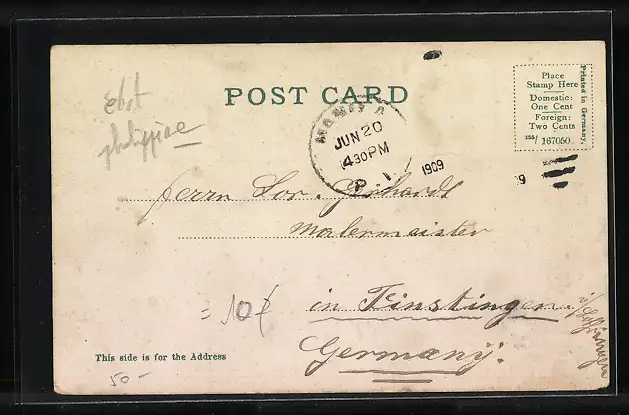 POST CARD
Place
Stamp Here
Domestic:
One Cent
Foreign:
Two Cents
355/ 167050.
Printed in Germany.
philippine
JUN 20
4 30 PM
P I
1909
9
Herrn Gerhardt
Malermeister
= 10
in Finstingen.
i/Lothringen
Germany.
This side is for the Address
50 -